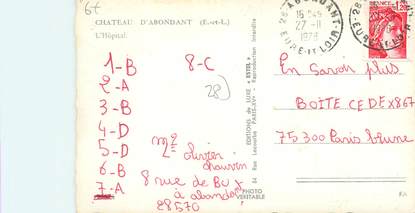 6t
CHATEAU D'ABONDANT (E.-et-L.)
L'Hôpital.
1-B 8-C
2-A
3-B
4-D
5-D
6-B
7-A
28)
Mr
Olivier
chauvin
8 rue de BU
à abondant
28570
EDITIONS de LUXE « ESTEL » Reproduction Interdite
84 Rue Lecourbe PARIS-XVe
PHOTO
VÉRITABLE
28 ABONDANT
16 H45
27-11
1978
EURE-ET-LOIR
28
1,20
En savoir plus
BOITE CEDEX 867
75300 Paris brune